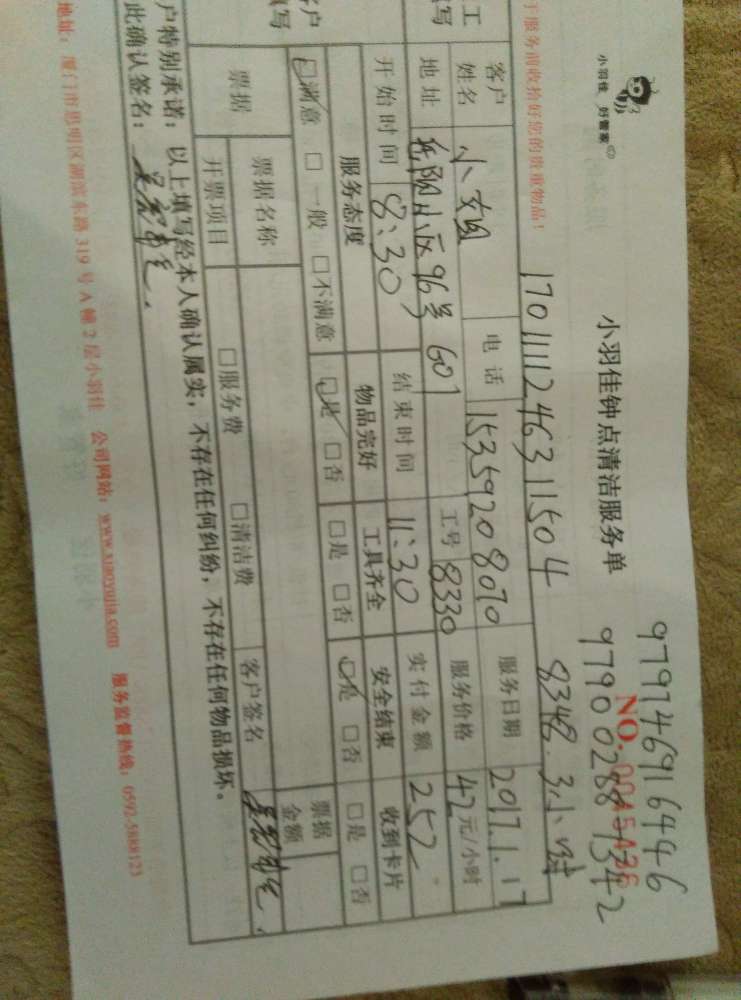 小羽佳 好管家
小羽佳钟点清洁服务单
97974691646
NO. 0045436
979002881342
于服务前收拾好您的贵重物品!
17011112463 11504
8348 3小时
工
写
客户姓名
小姐
电话
15359208070
服务日期
2017.1.17
地址
岳阳小区96号601
工号
8330
服务价格
42元/小时
开始时间
8:30
结束时间
11:30
实付金额
252
户
写
服务态度
物品完好
工具齐全
安全结束
收到卡片
☑满意 □一般 □不满意
☑是 □否
□是 □否
☑是 □否
□是 □否
票据
票据名称
票据金额
开票项目
□服务费 □清洁费
客户签名
户特别承诺:以上填写经本人确认属实,不存在任何纠纷,不存在任何物品损坏。
此确认签名:
地址:厦门市思明区湖滨东路319号A幢2层小羽佳 公司网站:www.xiaoyujia.com 服务监督热线:0592-5888123